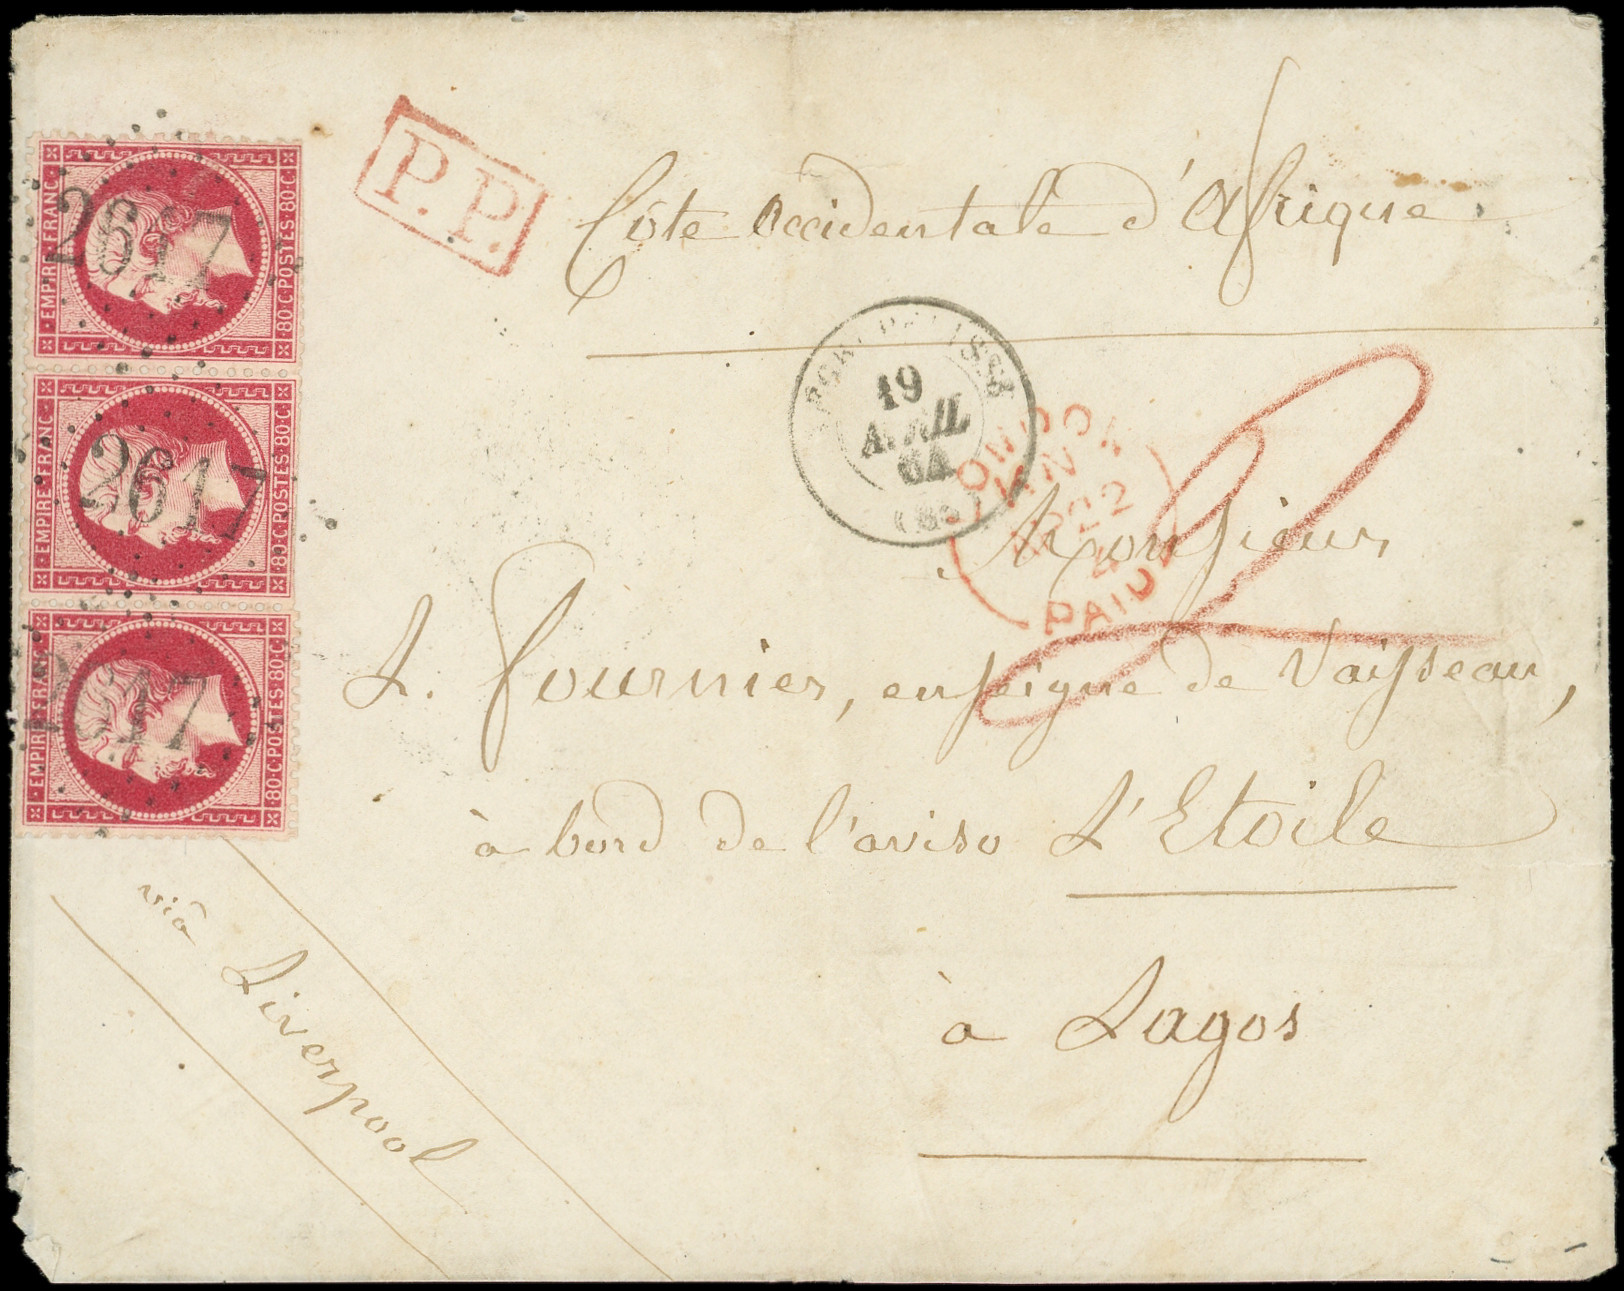 P.P.
Côte Occidentale d'Afrique
EMPIRE FRANC
80·C·POSTES·80·C
2617
EMPIRE·FRANC
80·C·POSTES·80·C
2617
EMPIRE·FRANC
80·C·POSTES·80·C
2617
19
AVRIL
64
LONDON
22
PAID
Monsieur
L. Fournier, enseigne de Vaisseau,
à bord de l'aviso L'Etoile
à Lagos
viâ Liverpool